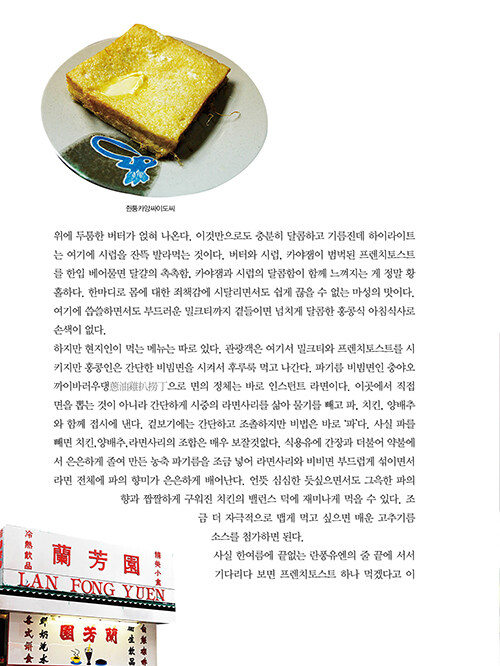 훤통카양싸이도씨
위에 두툼한 버터가 얹혀 나온다. 이것만으로도 충분히 달콤하고 기름진데 하이라이트
는 여기에 시럽을 잔뜩 발라먹는 것이다. 버터와 시럽, 카야잼이 범벅된 프렌치토스트
를 한입 베어물면 달걀의 촉촉함, 카야잼과 시럽의 달콤함이 함께 느껴지는 게 정말 황
홀하다. 한마디로 몸에 대한 죄책감에 시달리면서도 쉽게 끊을 수 없는 마성의 맛이다.
여기에 씁쓸하면서도 부드러운 밀크티까지 곁들이면 넘치게 달콤한 홍콩식 아침식사로
손색이 없다.
하지만 현지인이 먹는 메뉴는 따로 있다. 관광객은 여기서 밀크티와 프렌치토스트를 시
키지만 홍콩인은 간단한 비빔면을 시켜서 후루룩 먹고 나간다. 파기름 비빔면인 충야오
까이바러우댕蔥油雞扒撈丁으로 면의 정체는 바로 인스턴트 라면이다. 이곳에서 직접
면을 뽑는 것이 아니라 간단하게 시중의 라면사리를 삶아 물기를 빼고 파, 치킨, 양배추
와 함께 접시에 낸다. 겉보기에는 간단하고 조촐하지만 비법은 바로 ‘파’다. 사실 파를
빼면 치킨,양배추,라면사리의 조합은 매우 보잘것없다. 식용유에 간장과 더불어 약불에
서 은은하게 졸여 만든 농축 파기름을 조금 넣어 라면사리와 비비면 부드럽게 섞이면서
라면 전체에 파의 향미가 은은하게 배어난다. 언뜻 심심한 듯싶으면서도 그윽한 파의
향과 짭짤하게 구워진 치킨의 밸런스 덕에 재미나게 먹을 수 있다. 조
금 더 자극적으로 맵게 먹고 싶으면 매운 고추기름
소스를 첨가하면 된다.
사실 한여름에 끝없는 란퐁유엔의 줄 끝에 서서
기다리다 보면 프렌치토스트 하나 먹겠다고 이
冷熱飲品
蘭芳園
精美小食
LAN FONG YUEN
園芳蘭